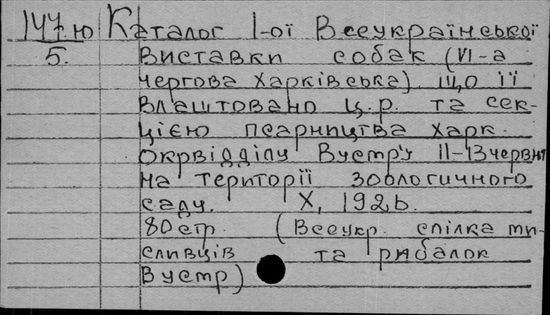 144ю Каталог І-ої Всеукраїнської
5. Виставки собак (VІ-а
чергова Харківська). Що її
влаштовано ц.р. та сек-
цією псарництва Харк.
Окрвідділу Вустр'у 11-13 червня
на території зоологичного
саду. Х, 1926.
80 стр. (Всеукр. спілка ми-
сливців та рибалок
Вустр)